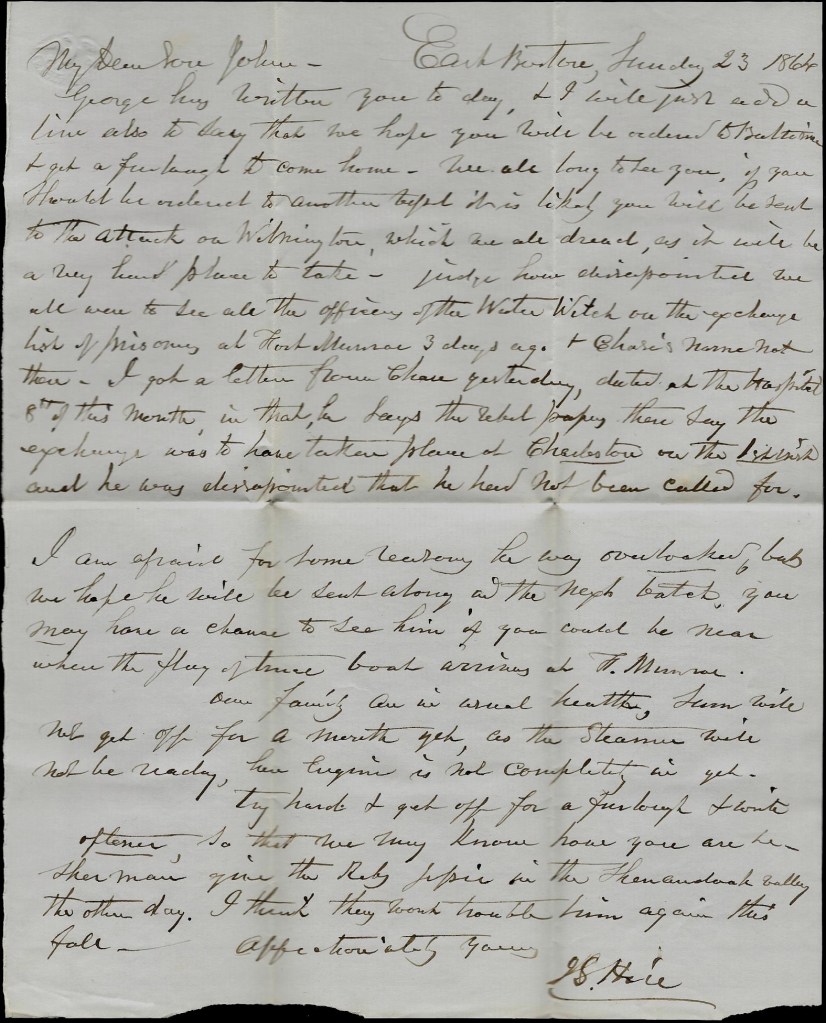 My Dear Son John - East Boston, Sunday 23 1864
George has written you to day, & I will just add a
line also to say that we hope you will be ordered to Baltimore
& get a furlough to come home - we all long to see you, if you
should be ordered to another it is likely you will be sent
to the attack on Wilmington, which we all dread, as it will be
a very hard place to take - judge how dissapointed we
all were to see all the officers of the Water Witch on the exchange
list of prisoners at Fort Munroe 3 days ago & Chase's name not
there - I got a letter from Chase yesterday, dated at the Hospital
8th of this month, in that, he says the rebel papers there say the
exchange was to have taken place at Charleston on the inst
and he was dissapointed that he had not been called for.
I am afraid for some reasons he was overlooked, but
we hope he will be sent along in the next batch, you
may have a chance to see him if you could be near
where the flag of truce boat arrives at F. Munroe.
Our family are in usual health, Sam will
not get off for a month yet, as the Steamer will
not be ready, her Engine is not completely in yet -
Try hard & get off for a furlough & write
oftener, so that we may know how you are &c -
Sherman give the Rebs in the Shenandoah valley
the other day. I think they wont trouble him again this
fall - Affectionately yours